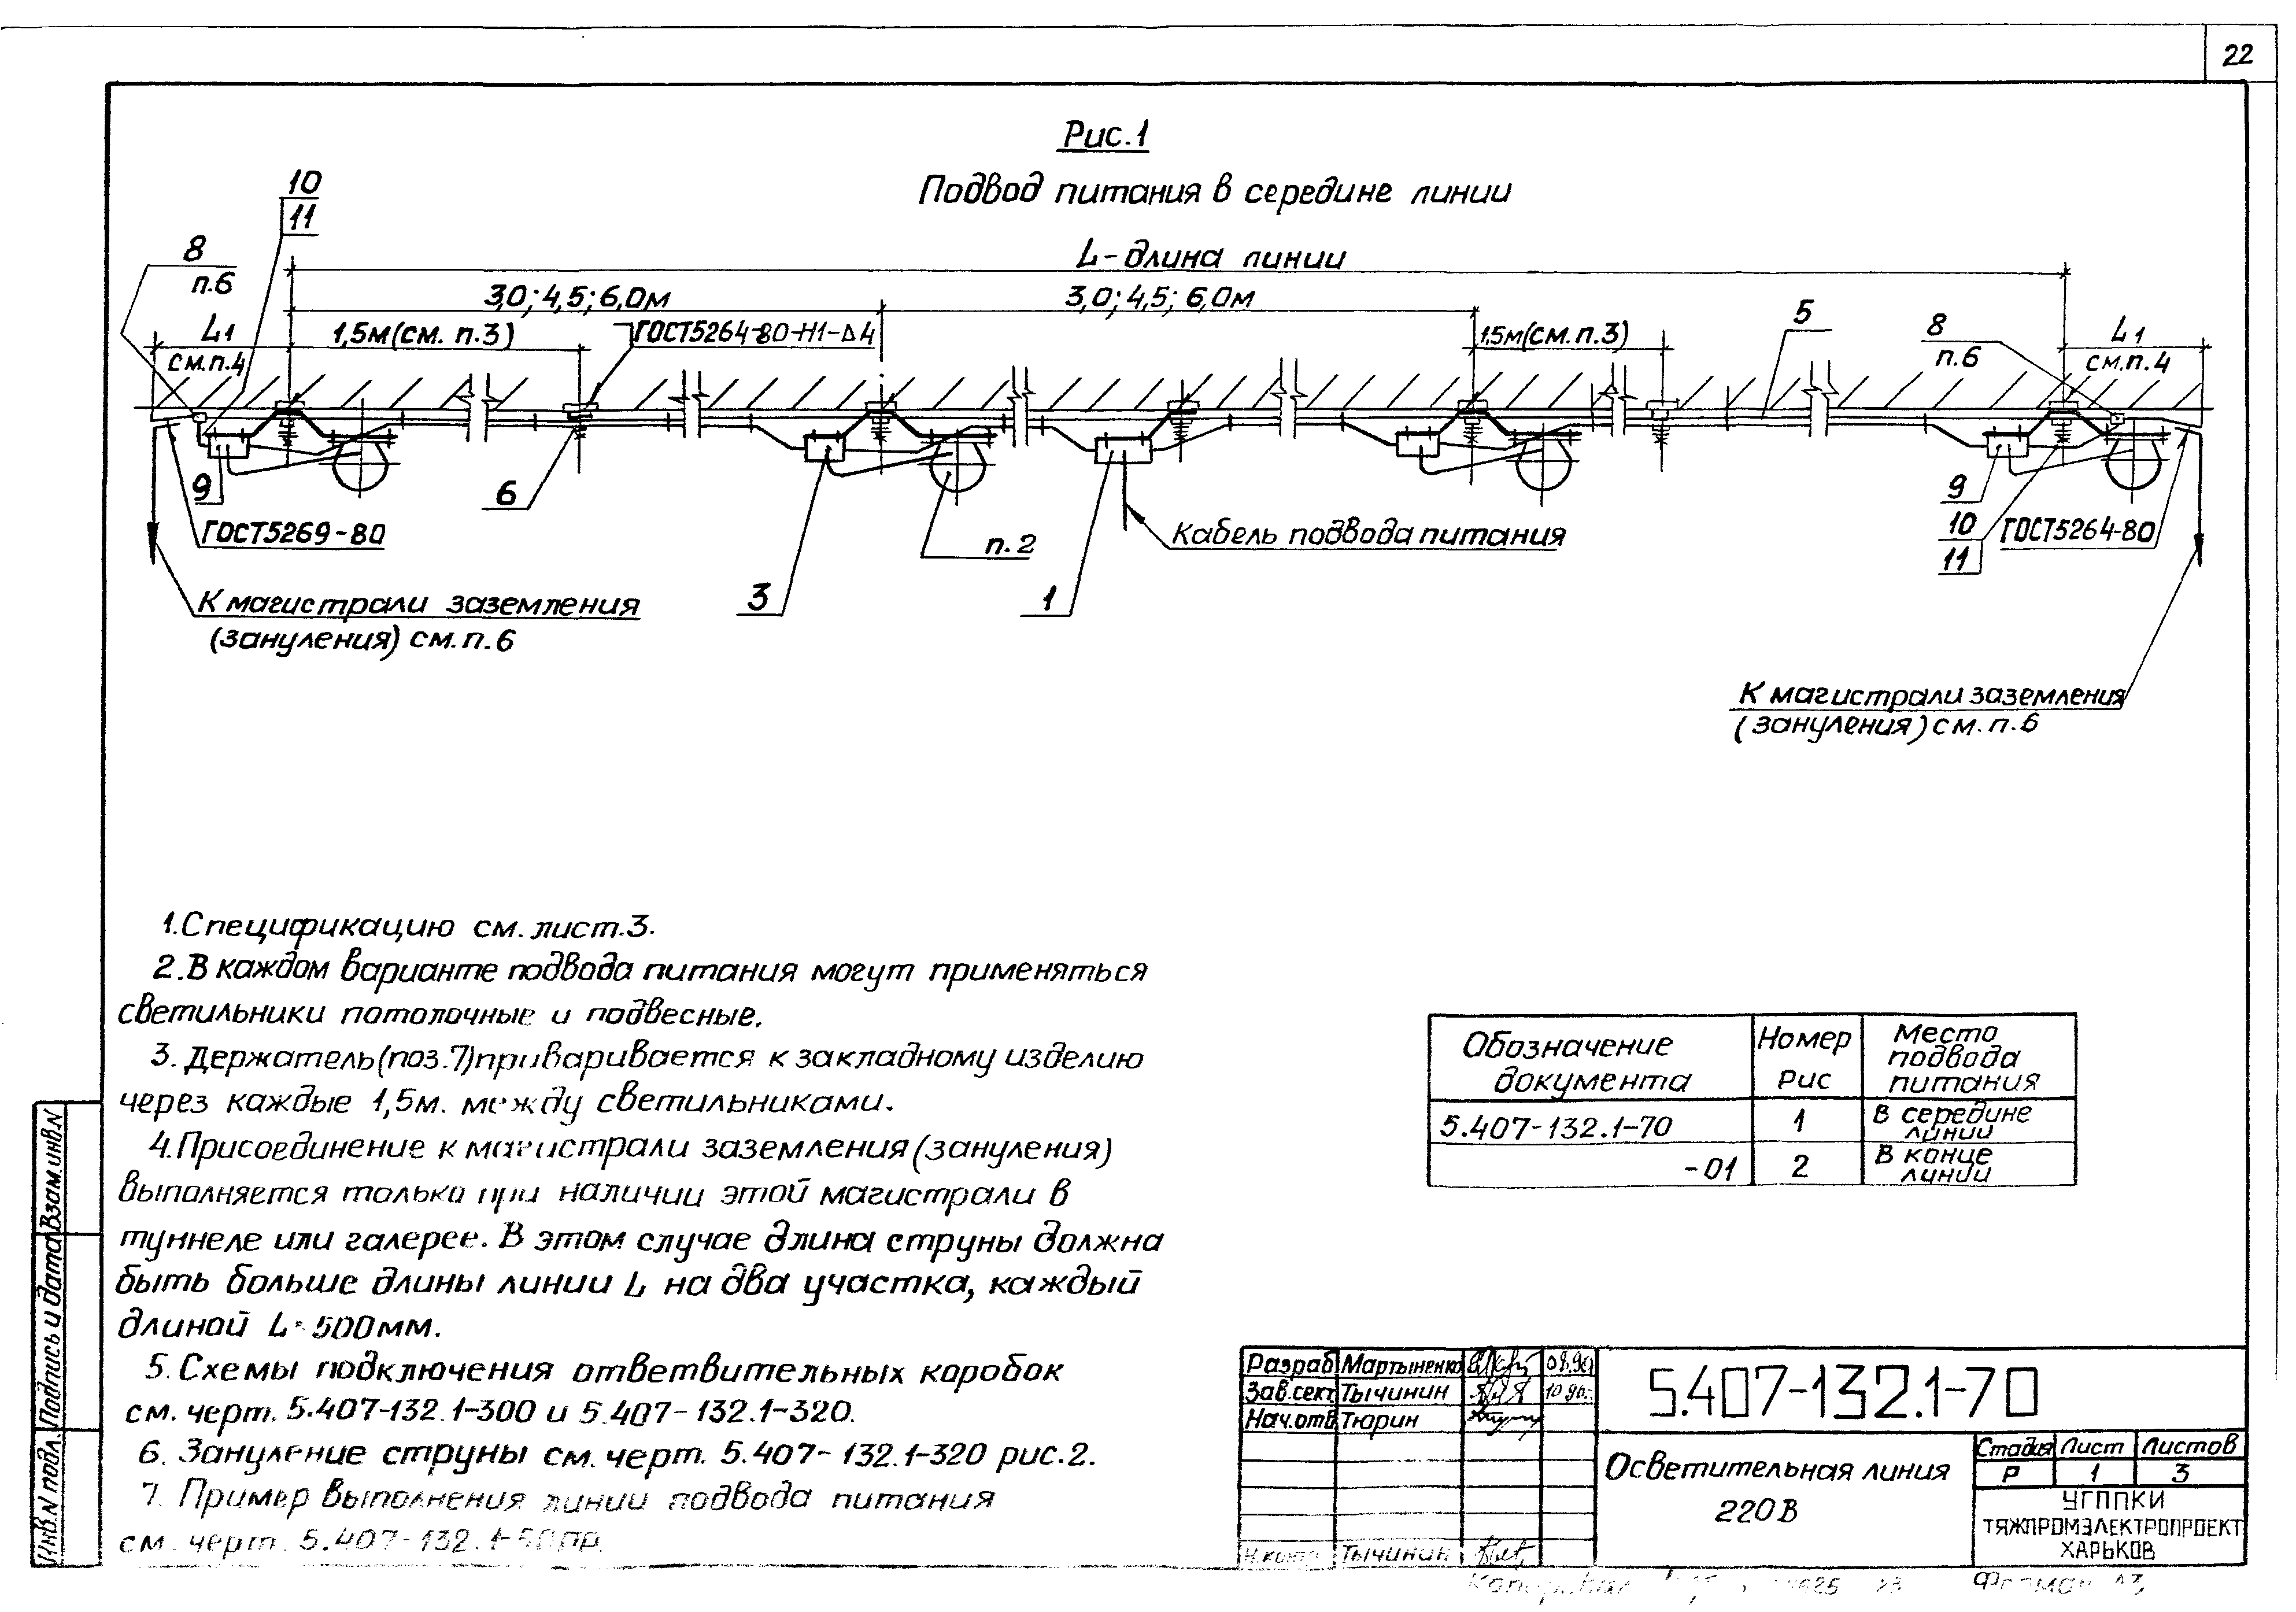 22
Рис.1
Подвод питания в середине линии
10
11
8
п.6
L-длина линии
3,0; 4,5; 6,0м
3,0; 4,5; 6,0м
L1
см.п.4
1,5м(см. п.3)
ГОСТ5264-80-Н1-Δ4
1,5м(см.п.3)
5
8
п.6
L1
см.п.4
9
6
ГОСТ5269-80
Кабель подвода питания
п.2
9
10
11
ГОСТ5264-80
3
1
К магистрали заземления
(зануления) см.п.6
К магистрали заземления
(зануления) см.п.6
1.Спецификацию см. лист.3.
2.В каждом варианте подвода питания могут применяться
светильники потолочные и подвесные.
3. Держатель(поз.7)приваривается к закладному изделию
через каждые 1,5м. между светильниками.
4.Присоединение к магистрали заземления(зануления)
выполняется только при наличии этой магистрали в
туннеле или галерее. В этом случае длина струны должна
быть больше длины линии L на два участка, каждый
длиной L 500мм.
5. Схемы подключения ответвительных коробок
см. черт. 5.407-132.1-300 и 5.407-132.1-320.
6. Зануление струны см. черт. 5.407-132.1-320 рис.2.
7. Пример выполнения линии подвода питания
см. черт. 5.407-132.1-50ПР.
Обозначение документа Номер Рис Место подвода питания
5.407-132.1-70 1 В середине линии
-01 2 В конце линии
Взам.инв.N
Подпись и дата
Инв.N подл.
Разраб Мартыненко 08.90
Зав.сект Тычинин 10.90
Нач.отв Тюрин
Н.контр Тычинин
5.407-132.1-70
Осветительная линия
220В
Стадия Лист Листов
Р 1 3
УГППКИ
ТЯЖПРОМЭЛЕКТРОПРОЕКТ
ХАРЬКОВ
Формат А3